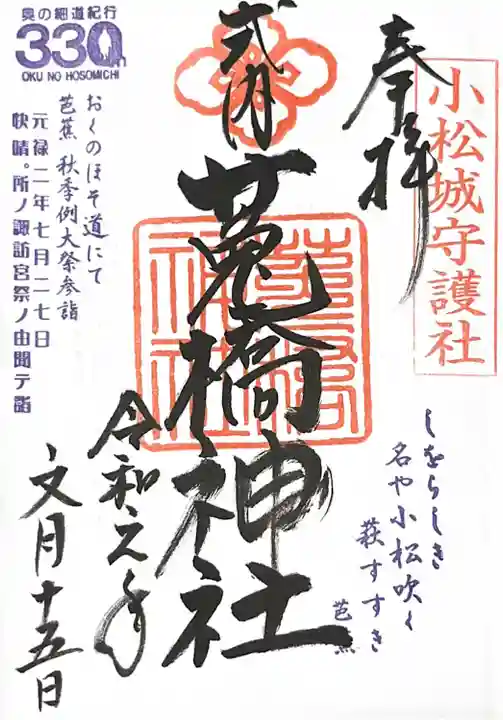 奉拝
小松城守護社
しをらしき
名や小松吹く
萩すすき
芭蕉
莵橋神社
令和元年
文月十五日
奥の細道紀行
330th
OKU NO HOSOMICHI
おくのほそ道にて
芭蕉 秋季例大祭参詣
元禄二年七月二七日
快晴。所ノ諏訪宮祭ノ由聞テ詣